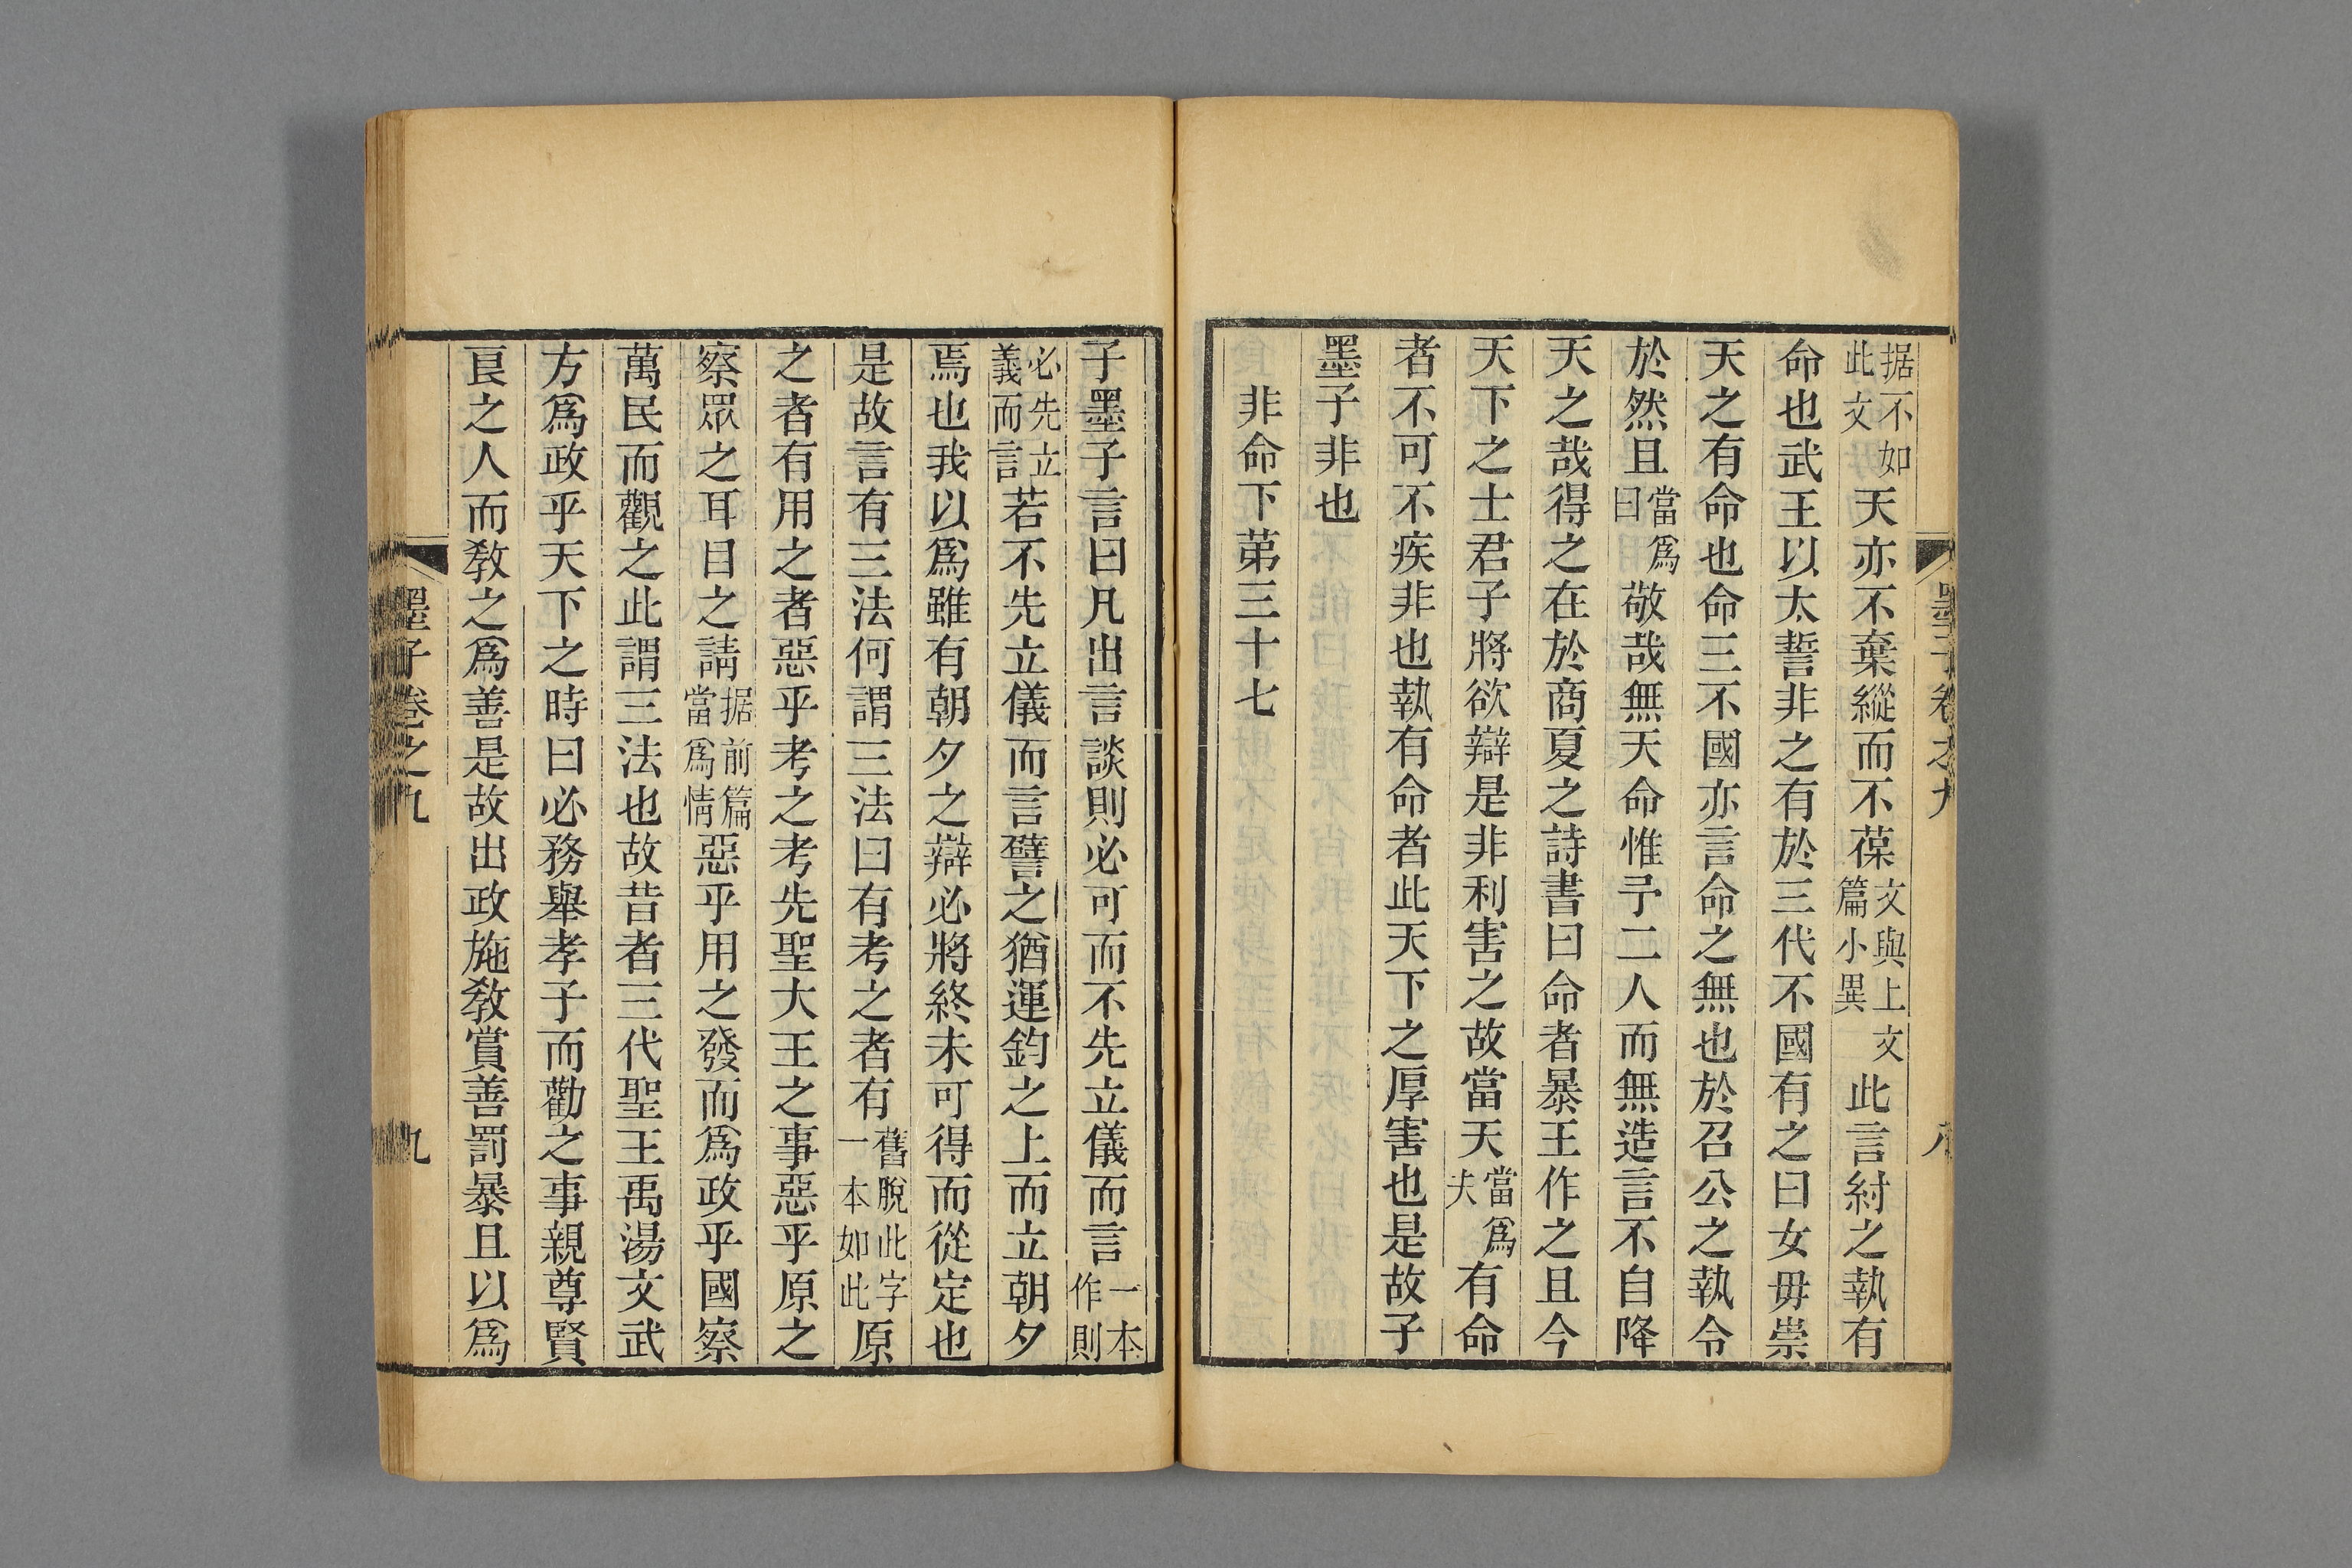 据不如此文天亦不棄縱而不葆文與上文篇小異此言紂之執有
命也武王以太誓非之有於三代不國有之曰女毋崇
天之有命也命三不國亦言命之無也於召公之執令
於然且當爲曰敬哉無天命惟予二人而無造言不自降
天之哉得之在於商夏之詩書曰命者暴王作之且今
天下之士君子將欲辯是非利害之故當天當爲夫有命
者不可不疾非也執有命者此天下之厚害也是故子
墨子非也
非命下第三十七
墨子卷之九
八
子墨子言曰凡出言談則必可而不先立儀而言一本作則
必先立義而言若不先立儀而言譬之猶運鈞之上而立朝夕
焉也我以爲雖有朝夕之辯必將終未可得而從定也
是故言有三法何謂三法曰有考之者有舊脫此字一本如此原
之者有用之者惡乎考之考先聖大王之事惡乎原之
察眾之耳目之請据前篇當爲情惡乎用之發而爲政乎國察
萬民而觀之此謂三法也故昔者三代聖王禹湯文武
方爲政乎天下之時曰必務舉孝子而勸之事親尊賢
良之人而教之爲善是故出政施教賞善罰暴且以爲
墨子卷之九
九